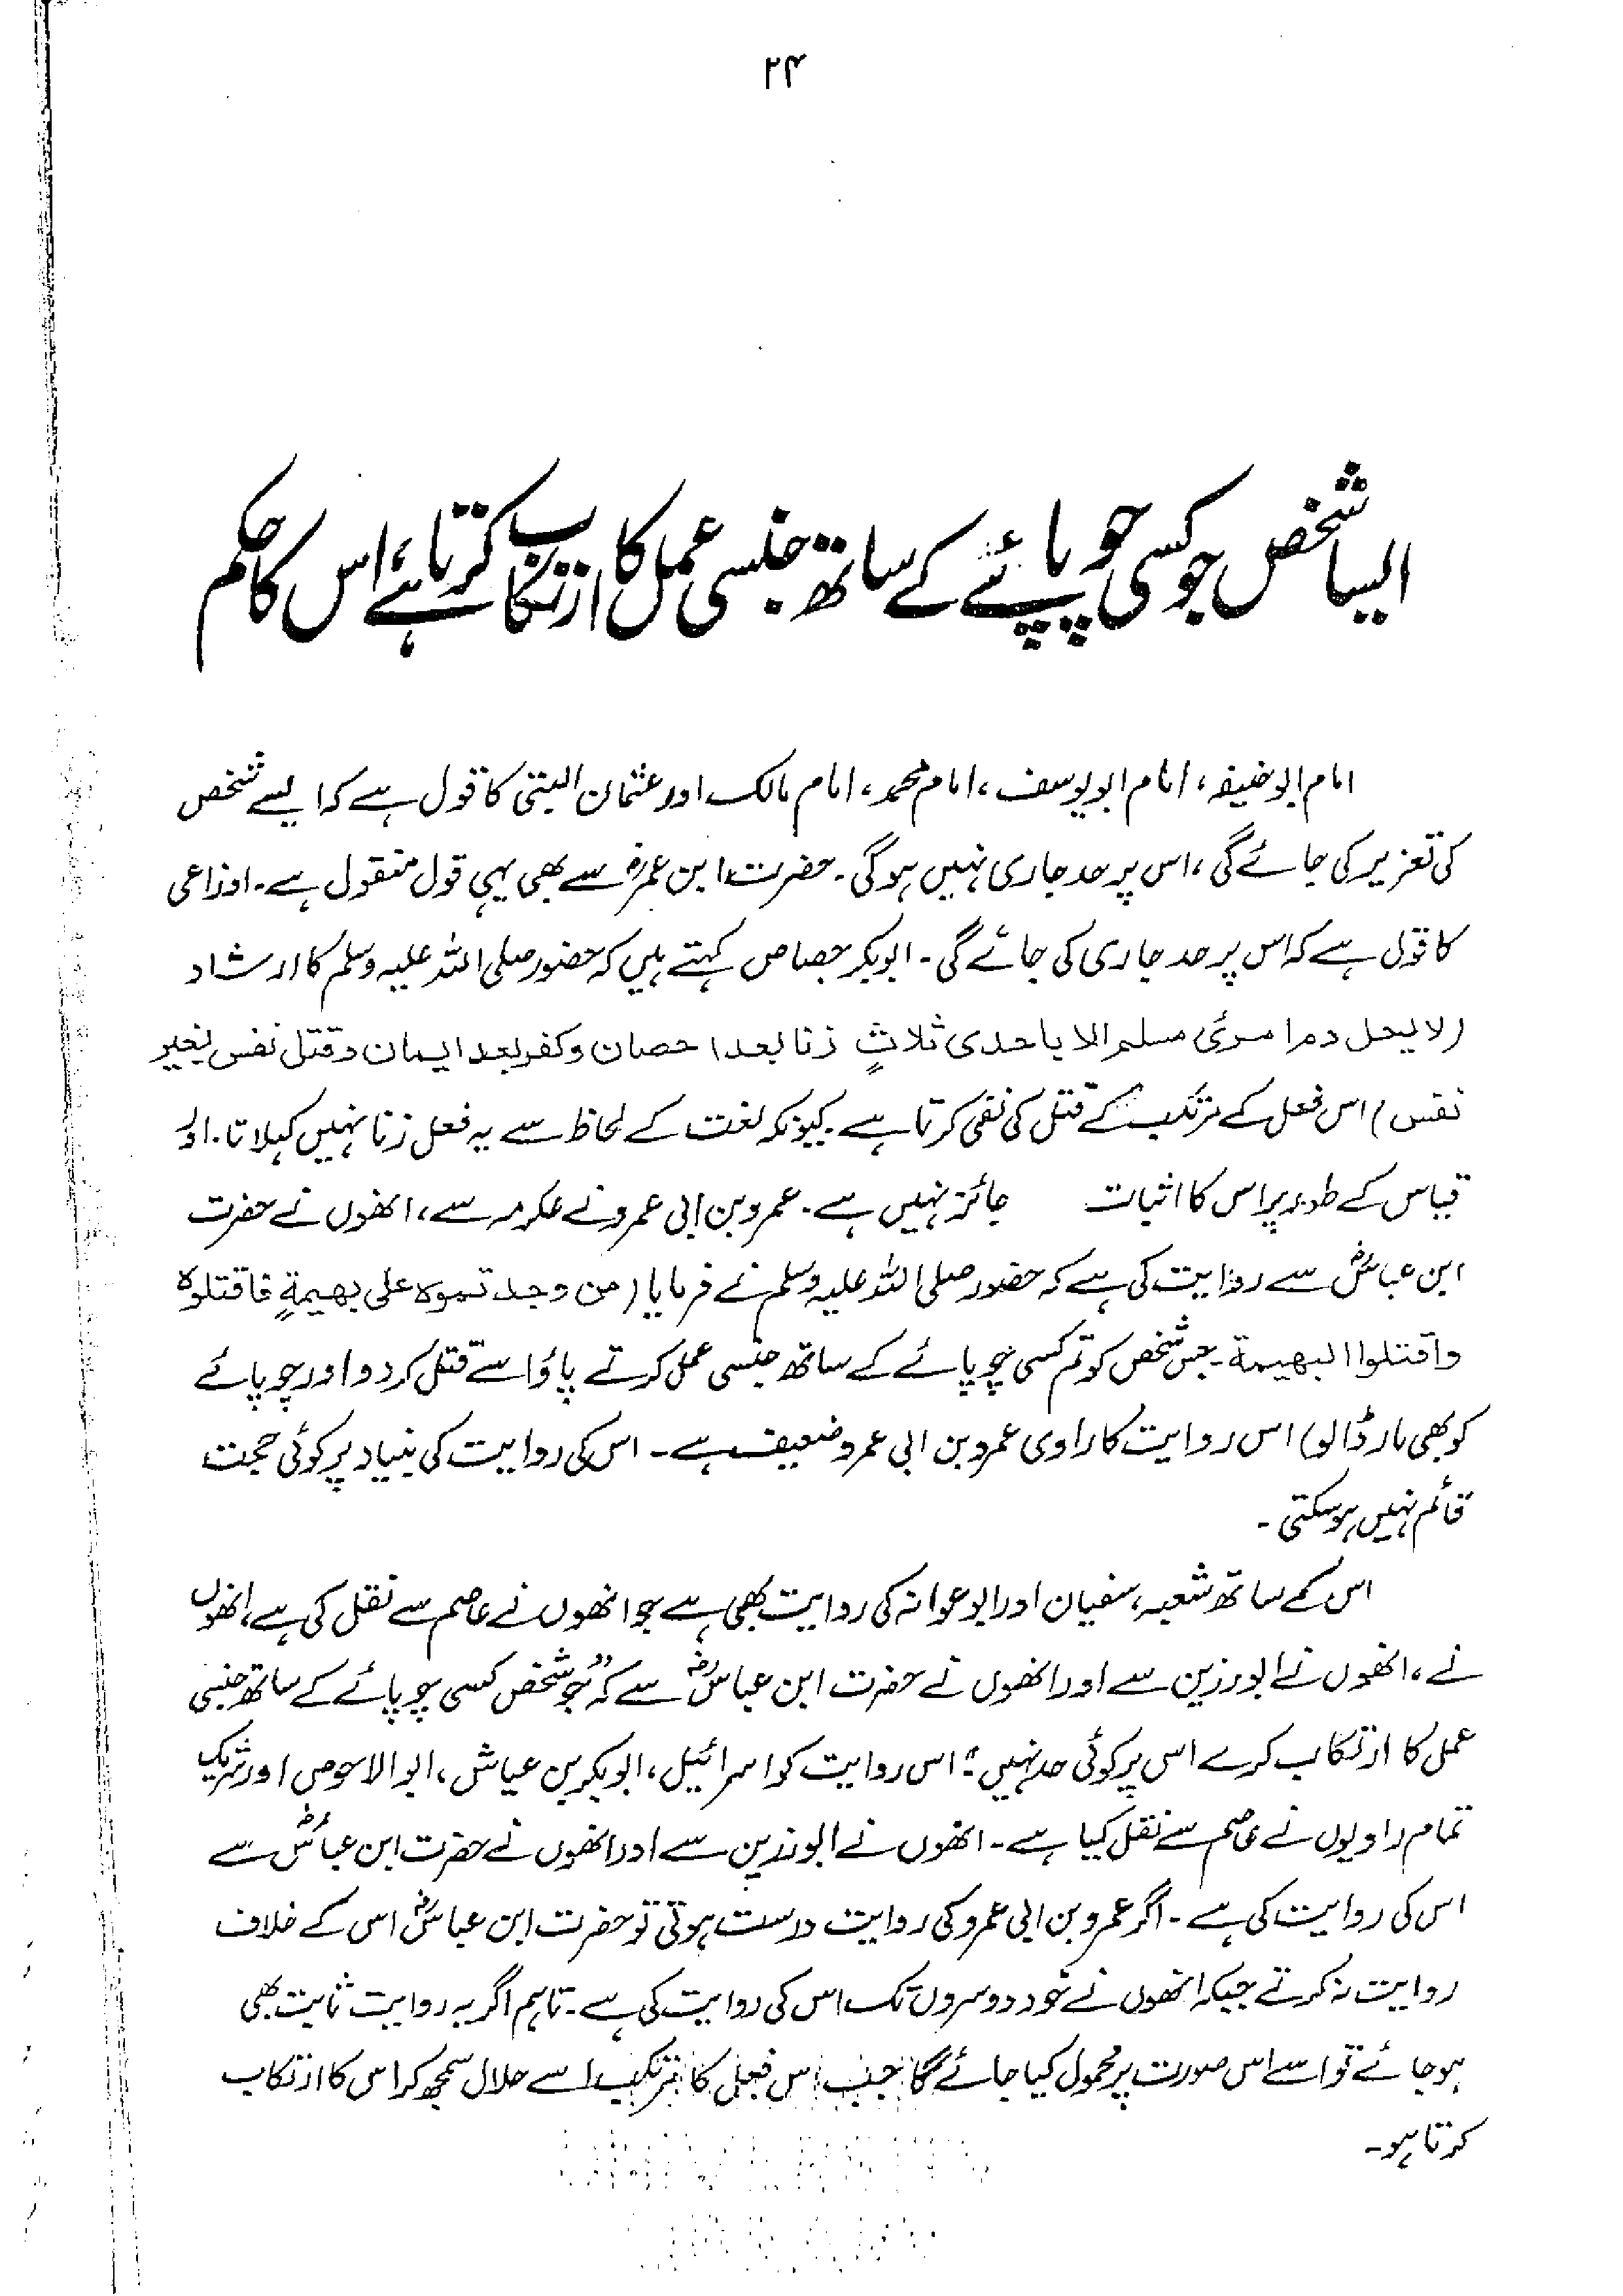 ۲۴
ایسا شخص جو کسی چوپائے کے ساتھ جنسی عمل کا ارتکاب کرتا ہے، اس کا حکم
امام ابوحنیفہ، امام ابویوسف، امام محمد، امام مالک اور عثمان البتی کا قول ہے کہ ایسے شخص
کی تعزیر کی جائے گی، اس پر حد جاری نہیں ہوگی۔ حضرت ابن عمرؓ سے بھی یہی قول منقول ہے۔ اوزاعی
کا قول ہے کہ اس پر حد جاری کی جائے گی۔ ابوبکر جصاص کہتے ہیں کہ حضور صلی اللہ علیہ وسلم کا ارشاد
(لا یحل دم امرئ مسلم الا باحدی ثلاثٍ زنا بعد احصان وکفر بعد ایمان وقتل نفس بغیر
نفس) اس فعل کے مرتکب کے قتل کی نفی کرتا ہے۔ کیونکہ لغت کے لحاظ سے یہ فعل زنا نہیں کہلاتا۔ اور
قیاس کے طور پر اس کا اثبات جائز نہیں ہے۔ عمرو بن ابی عمرو نے عکرمہ سے، انھوں نے حضرت
ابن عباسؓ سے روایت کی ہے کہ حضور صلی اللہ علیہ وسلم نے فرمایا (من وجدتموہ علی بھیمةٍ فاقتلوہ
واقتلوا البھیمة۔ جس شخص کو تم کسی چوپائے کے ساتھ جنسی عمل کرتے پاؤ اسے قتل کردو اور چوپائے
کو بھی مار ڈالو) اس روایت کا راوی عمرو بن ابی عمرو ضعیف ہے۔ اس کی روایت کی بنیاد پر کوئی حجت
قائم نہیں ہوسکتی۔
اس کے ساتھ شعبہ، سفیان اور ابوعوانہ کی روایت بھی ہے جو انھوں نے عاصم سے نقل کی ہے، انھوں
نے، انھوں نے ابورزین سے اور انھوں نے حضرت ابن عباسؓ سے کہ "جو شخص کسی چوپائے کے ساتھ جنسی
عمل کا ارتکاب کرے اس پر کوئی حد نہیں"۔ اس روایت کو اسرائیل، ابوبکر بن عیاش، ابوالاحوص اور شریک
تمام راویوں نے عاصم سے نقل کیا ہے۔ انھوں نے ابورزین سے اور انھوں نے حضرت ابن عباسؓ سے
اس کی روایت کی ہے۔ اگر عمرو بن ابی عمرو کی روایت درست ہوتی تو حضرت ابن عباسؓ اس کے خلاف
روایت نہ کرتے جبکہ انھوں نے خود دوسروں تک اس کی روایت کی ہے۔ تاہم اگر یہ روایت ثابت بھی
ہوجائے تو اسے اس صورت پر محمول کیا جائے گا جب اس فعل کا مرتکب اسے حلال سمجھ کر اس کا ارتکاب
کرتا ہو۔